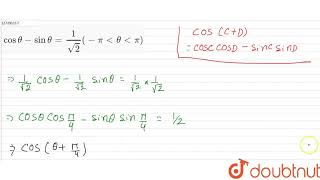 cos θ − sin θ = 1/√2 (−π < θ < π)
COS (C+D)
= COSC COSD − SINC SIND
⇒ 1/√2 COSθ − 1/√2 SINθ = 1/√2 × 1/√2
⇒ COSθ COS π/4 − SINθ SIN π/4 = 1/2
⇒ COS (θ + π/4)
doubtnut